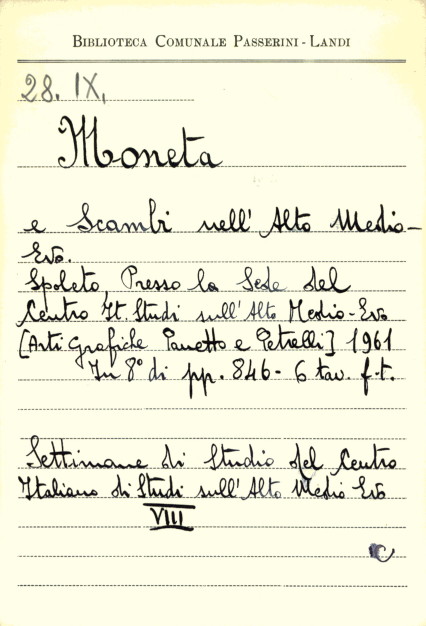 BIBLIOTECA COMUNALE PASSERINI - LANDI
28. IX.
Moneta
e Scambi nell' Alto Medio-
Evo.
Spoleto, Presso la Sede del
Centro It. Studi sull'Alto Medio-Evo
[Arti Grafiche Panetto e Petrelli] 1961
In 8° di pp. 846 - 6 tav. f.t.
Settimane di Studio del Centro
Italiano di Studi sull'Alto Medio Evo
VIII